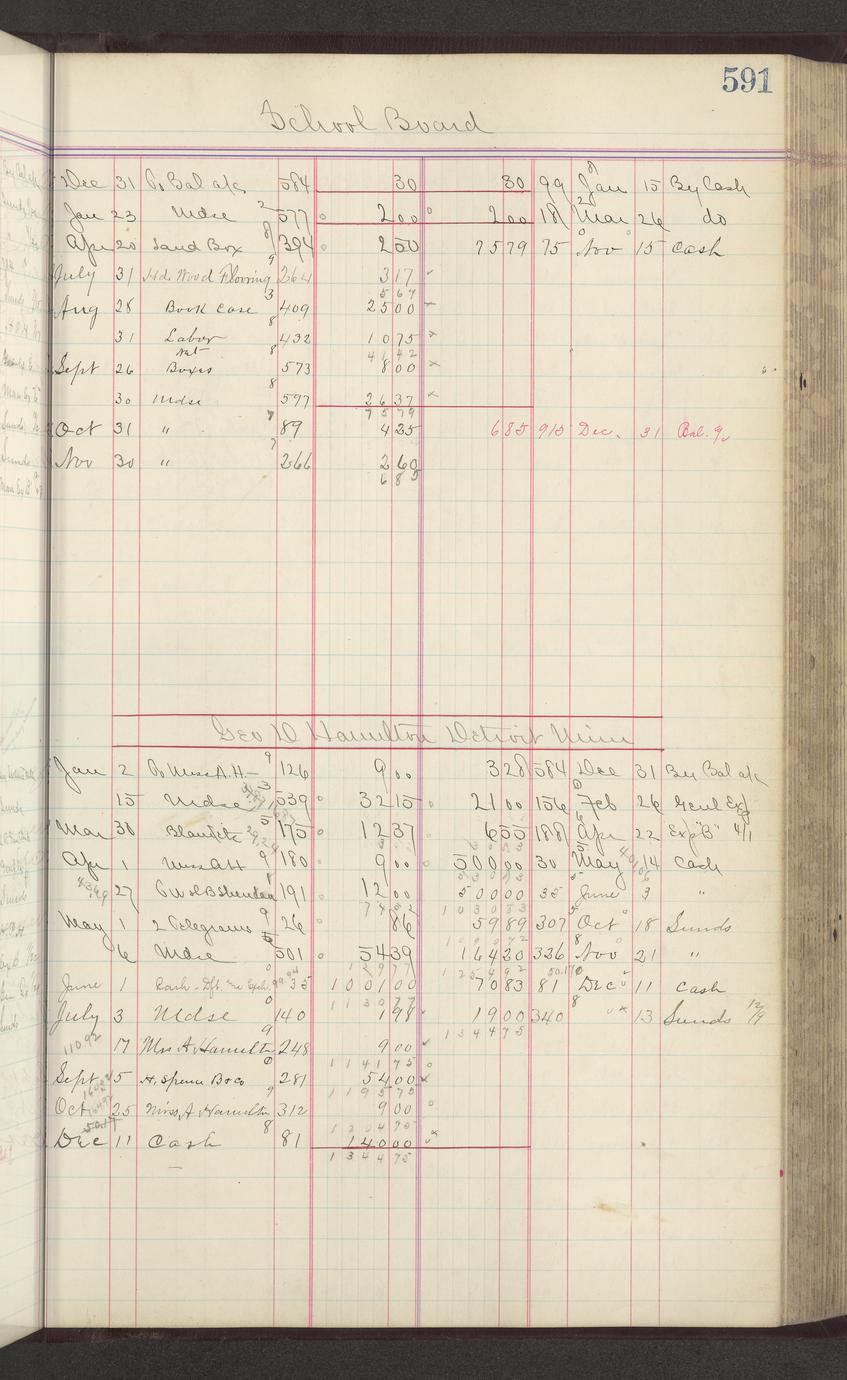 591
School Board
Dec 31 To Bal a/c 584 30 30 99 Jan 15 By Cash
Jan 23 Mdse 577 2 00 2 00 181 Mar 26 do
Apr 20 Sand Box 394 2 50 75 79 75 Nov 15 Cash
July 31 Hd. Wood Flooring 264 3 17
5 67
Aug 28 Book Case 409 25 00
31 Labor 432 10 75
41 42
Sept 26 Boxes 573 8 00
30 Mdse 597 26 37
75 79
Oct 31 " 89 4 25 6 85 915 Dec. 31 Bal.
Nov 30 " 266 2 60
6 85
Geo D Hamilton Detroit Minn
Jan 2 To Miss A.H. 126 9 00 3 28 584 Dec 31 By Bal a/c
15 Mdse 539 32 15 21 00 156 Feb 26 Genl Exp
Mar 30 Blankets 175 12 37 6 55 188 Apr 22 Exp "B" 4/1
Apr 1 Miss AH 180 9 00 500 00 30 May 14 Cash
27 191 12 00 500 00 35 June 3 "
74 52 1030 83
May 1 2 Telegrams 26 86 59 89 307 Oct 18 Sunds
6 Mdse 501 54 39 164 20 326 Nov 21 "
129 77 1254 92
June 1 Cash - Dft. 35 1001 00 70 83 81 Dec 11 Cash
1130 77
July 3 Mdse 140 1 98 19 00 340 13 Sunds 12/9
1344 75
17 Mrs A Hamilton 248 9 00
1141 75
Sept 5 H. Spence B & Co 281 54 00
1195 75
Oct 25 Miss A Hamilton 312 9 00
1204 75
Dec 11 Cash 81 140 00
1344 75